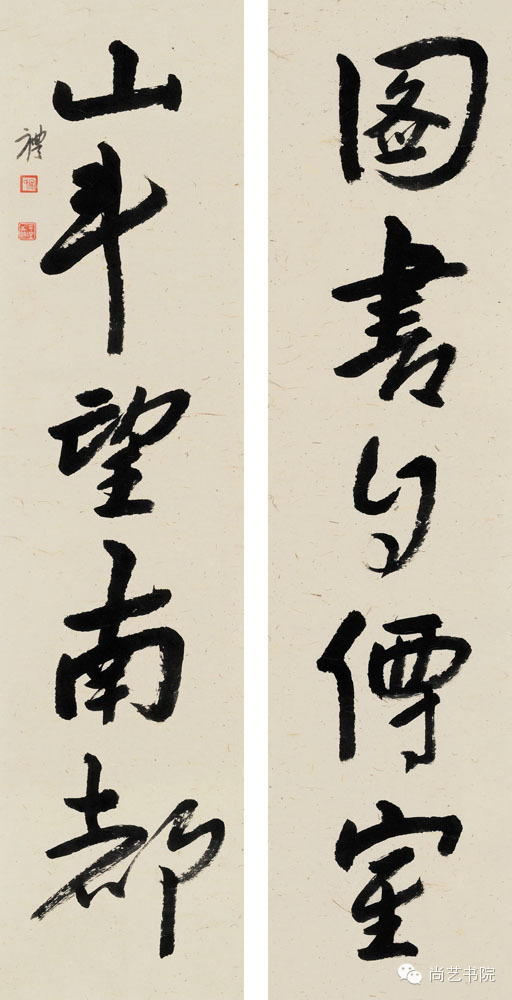 圖書分傳室
山斗望南都
禮
尚艺书院